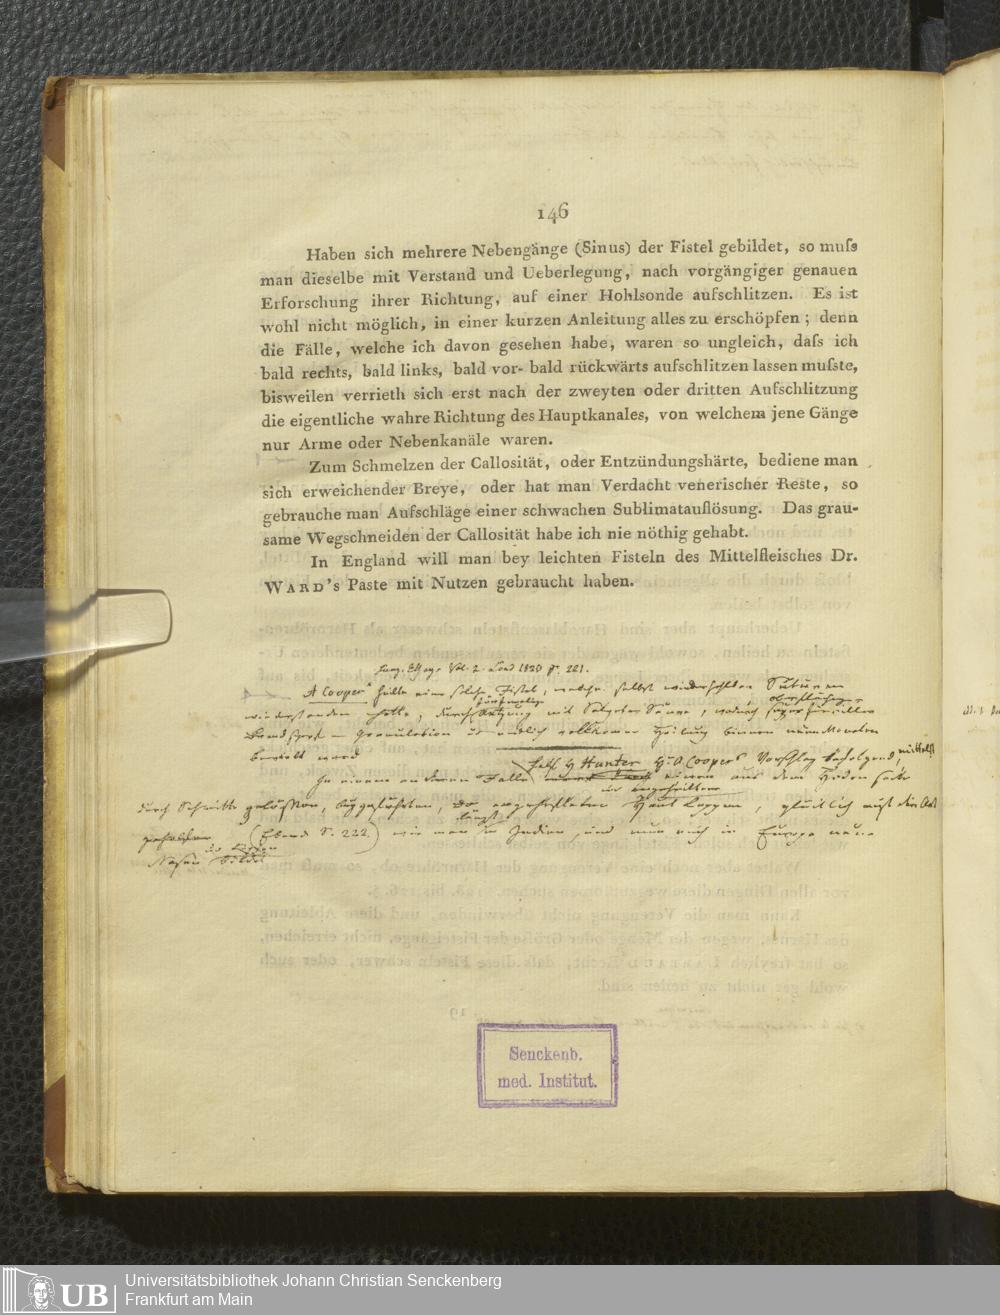 146
Haben sich mehrere Nebengänge (Sinus) der Fistel gebildet, so muſs
man dieselbe mit Verstand und Ueberlegung, nach vorgängiger genauen
Erforschung ihrer Richtung, auf einer Hohlsonde aufschlitzen. Es ist
wohl nicht möglich, in einer kurzen Anleitung alles zu erschöpfen; denn
die Fälle, welche ich davon gesehen habe, waren so ungleich, daſs ich
bald rechts, bald links, bald vor- bald rückwärts aufschlitzen lassen muſste,
bisweilen verrieth sich erst nach der zweyten oder dritten Aufschlitzung
die eigentliche wahre Richtung des Hauptkanales, von welchem jene Gänge
nur Arme oder Nebenkanäle waren.
Zum Schmelzen der Callosität, oder Entzündungshärte, bediene man
sich erweichender Breye, oder hat man Verdacht venerischer Reste, so
gebrauche man Aufschläge einer schwachen Sublimatauflösung. Das grau-
same Wegschneiden der Callosität habe ich nie nöthig gehabt.
In England will man bey leichten Fisteln des Mittelfleisches Dr.
WARD's Paste mit Nutzen gebraucht haben.
Surg. Essays Vol. 2. Lond 1820 p. 221.
A Cooper heilte eine solche Fistel, welche selbst wiederholten Suturen
wiederstanden hatte, durch Aetzung mit Salpeter Säure, wodurch
Granulation endlich vollkommne Heilung binnen neun Monaten
bewirkt ward
In einem anderen Falle half H Hunter A Coopers Vorschlag befolgend, mittelst
durch Schnitte Haut Lappen, glücklich
(Ebend S. 222) wie man in Indien, und nun auch in Europa neue
Nasen bildet
Senckenb.
med. Institut.
UB
Universitätsbibliothek Johann Christian Senckenberg
Frankfurt am Main